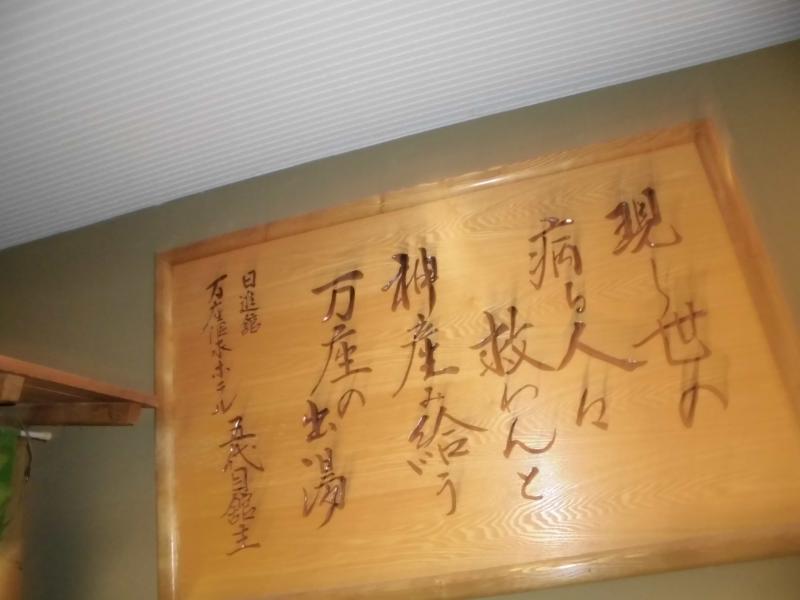 現し世の
病る人に
救わんと
神産み給う
万座の出湯
日進館
万座温泉ホテル 五代目舘主